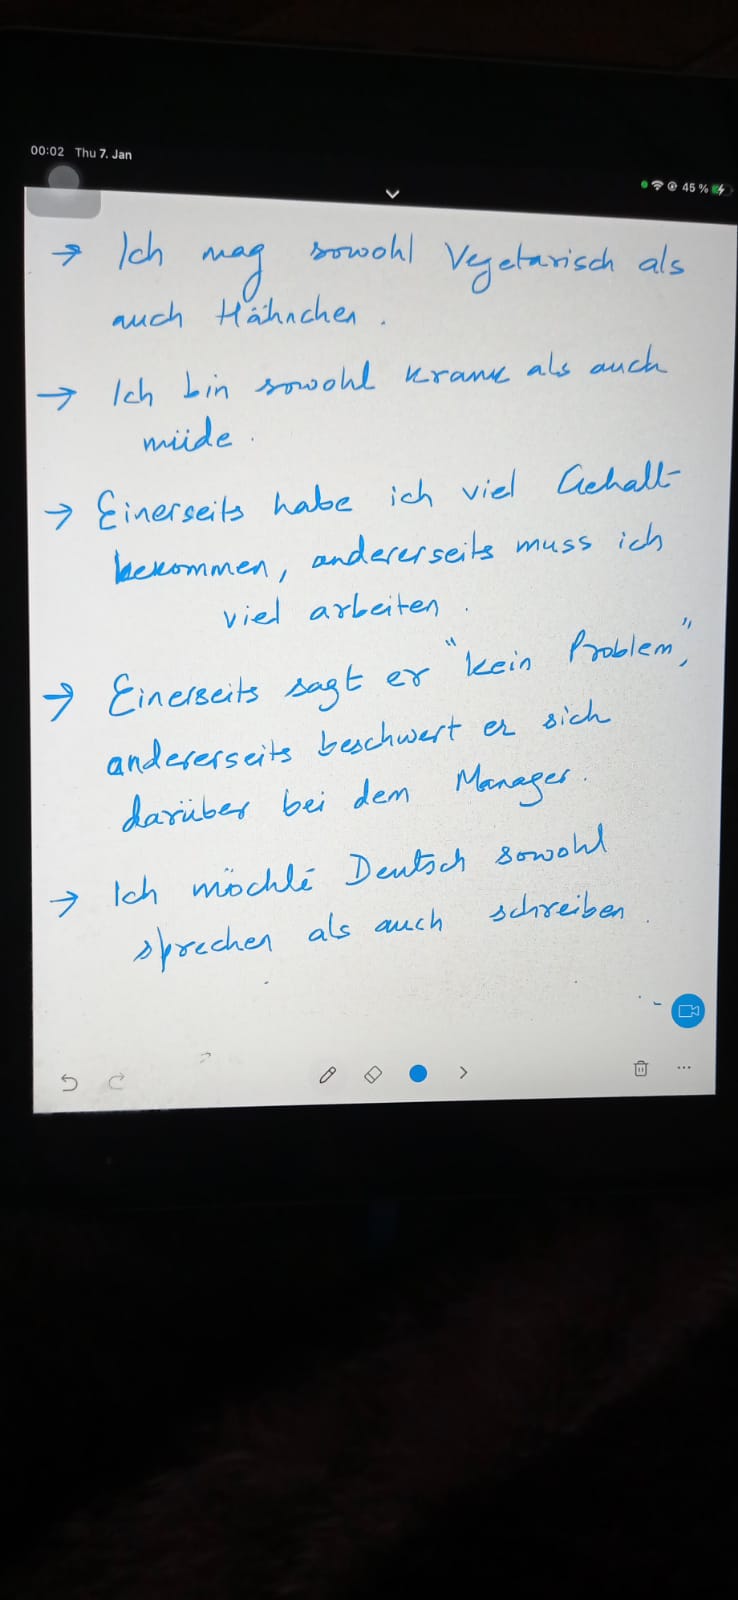 00:02 Thu 7. Jan
45 %
→ Ich mag sowohl Vegetarisch als
auch Hähnchen.
→ Ich bin sowohl krank als auch
müde.
→ Einerseits habe ich viel Gehalt
bekommen, andererseits muss ich
viel arbeiten.
→ Einerseits sagt er "kein Problem",
andererseits beschwert er sich
darüber bei dem Manager.
→ Ich möchte Deutsch sowohl
sprechen als auch schreiben.